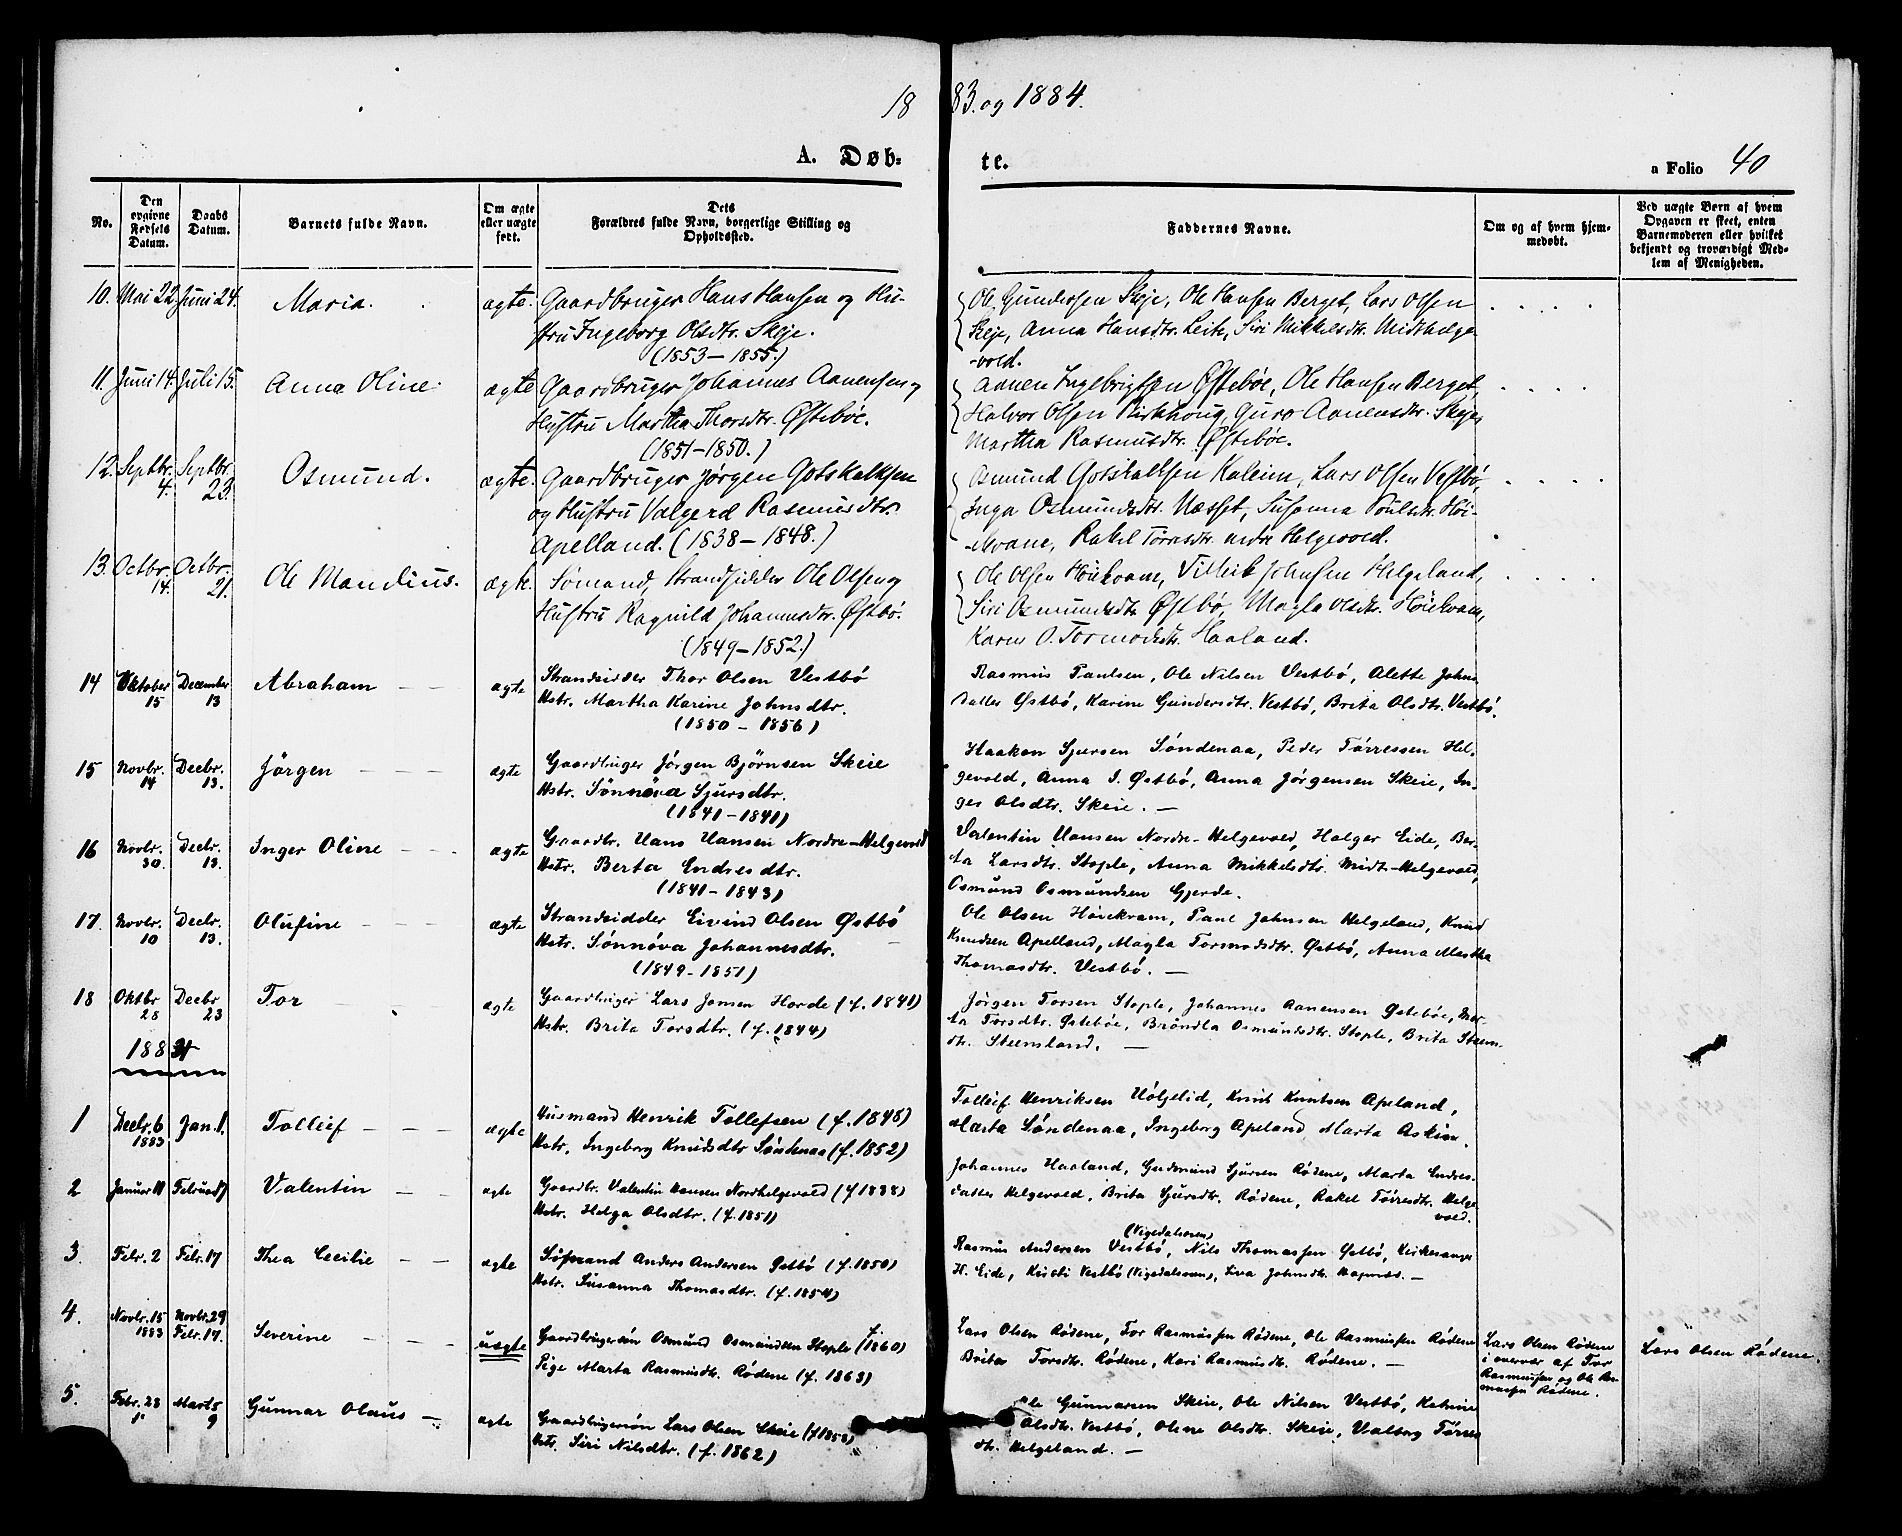 1883. og 1884.
A. Døbte.
a Folio 40
No. | Den opgivne Fødsels Datum. | Daabs Datum. | Barnets fulde Navn. | Om ægte eller uægte født. | Dets Forældres fulde Navn, borgerlige Stilling og Opholdssted. | Faddernes Navne. | Om og af hvem hjemmedøbt. | Ved uægte Børn af hvem Opgaven er skeet, enten Barnemoderen eller hvilket bekjendt og troværdigt Medlem af Menigheden.
10. Mai 22. Juni 24. Maria. ægte. Gaardbruger Hans Hansen og Hu-
stru Ingeborg Olsdtr. Skeje.
(1853 – 1855.)
Ole Gundersen Skeje, Ole Hansen Berget, Lars Olsen
Skeje, Anna Hansdtr. Leite, Siri Mikkelsdtr. Midthelge-
-vold.
11. Juni 14. Juli 15. Anna Oline. ægte Gaardbruger Johannes Aanensen og
Hustru Martha Thorsdtr. Østebøe.
(1851 – 1850.)
Aanen Ingebrigtsen Østebøe, Ole Hansen Berget,
Halvor Olsen Kirkhoug, Guro Aanensdtr. Skeje,
Martha Rasmusdtr. Østebøe.
12. Septbr. 4. Septbr. 23. Osmund. ægte. Gaardbruger Jørgen Gotskalksen
og Hustru Valgerd Rasmusdtr.
Apelland. (1838 – 1848.)
Osmund Gotskalksen Kaleim, Lars Olsen Vestbø,
Inga Osmundsdtr. Næsset, Susanna Poulsdtr. Høi-
-kvane, Rakel Tørresdtr. nedre Helgevold.
13. Octbr. 14. Octbr. 21. Ole Mandius. ægte. Sømand, Strandsidder Ole Olsen og
Hustru Ragnild Johannesdtr. Østbø.
(1849 – 1852.)
Ole Olsen Høiekvam, Tilleik Johnsen Helgeland,
Siri Osmundsdtr. Østbø, Magla Olsdtr. Høiekvam,
Karen O. Tormodsdtr. Haaland.
14 Oktober 15 December 13 Abraham – – ægte Strandsidder Thor Olsen Vestbø
Hstr. Martha Karine Johnsdtr.
(1850 – 1856)
Rasmus Paulsen, Ole Nilsen Vestbø, Alette Johns-
datter Østbø, Karine Gundersdtr. Vestbø, Brita Olsdtr. Vestbø.
15 Novbr. 14 Decbr. 13. Jörgen – – – ægte Gaardbruger Jörgen Bjørnsen Skeie
Hstr. Sönnöva Sjursdtr.
(1841 – 1841)
Haakon Sjursen Søndenaa, Peder Törressen Hel-
gevold, Anna I. Østbø, Anna Jørgensen Skeie, In-
ger Olsdtr. Skeie. –
16 Novbr. 30. Decbr. 13. Inger Oline – – – ægte Gaardbr. Hans Hansen Nordre-Helgevold
Hstr. Berta Endresdtr.
(1841 – 1843)
Valentin Hansen Nordre-Helgevold, Holger Eide, Ber-
ta Larsdtr. Stople, Anna Mikkelsdtr. Midt-Helgevold,
Osmund Osmundsen Gjerde.
17. Novbr. 10 Decbr. 13. Olufine – – – ægte Strandsidder Eivind Olsen Østbö
Hstr. Sönnöva Johannesdtr.
(1849 – 1851)
Ole Olsen Höiekvam, Paul Johnsen Helgeland, Knud
Knudsen Apelland, Magla Tormodsdtr. Østbø, Anna Martha
Thomasdtr. Vestbø. –
18 Oktbr 28 Decbr 23 Tor ægte Gaardbruger Lars Jonsen Horde (f. 1841)
Hstr. Brita Torsdtr. (f. 1844)
Jörgen Torsen Stople, Johannes Aanensen Østebøe, Mar-
ta Torsdtr. Østebøe, Bröndla Osmundsdtr. Stople, Brita Steen-
dtr. Steensland. –
1884
1 Decbr. 6 1883 Jan. 1. Tolleif – – – ægte Husmand Henrik Tollefsen (f. 1848)
Hstr. Ingeborg Knudsdtr Søndenaa (f. 1852)
Tolleif Henriksen Hölgelid, Knut Knutsen Apeland,
Marta Søndenaa, Ingeborg Apeland Marta Askim.
2 Januar 11 Februar 17 Valentin – – ægte Gaardbr. Valentin Hansen Nordhelgevold (f 1838)
Hstr. Helga Olsdtr. (f. 1851)
Johannes Haaland, Gudmund Sjursen Rødene, Marta Endres-
datter Helgevold, Brita Sjursdtr. Rødene, Rakel Törresdtr. Helge-
vold.
3. Febr. 2 Febr. 17 Thea Cecilie – – ægte Sømand Anders Andersen Østbö (f. 1850)
Hstr. Susanna Thomasdtr. (f. 1854)
(Vigedalsøren)
Rasmus Andersen Vestbø, Nils Thomassen Østbø, Kirkesanger
H. Eide, Kristi Vestbø (Vigedalsøren), Liva Johnsdtr. Hapnæs. –
4. Novbr. 15 1883 Novbr. 29 Febr. 17. Severine – – – uægte Gaardbrugersön Osmund Osmundsen Stople (f. 1860)
Pige Marta Rasmusdtr. Rødene (f. 1863)
Lars Olsen Rødene, Tor Rasmussen Rødene, Ole Rasmussen Rødene
Brita Torsdtr. Rødene, Kari Rasmusdtr. Rødene. –
Lars Olsen Rødene
i overvær af Tor
Rasmussen og Ole Ras-
mussen Rødene.
Lars Olsen Rødene.
5. Febr. 23 Marts 9 Gunnar Olaus – ægte Gaardbrugersön Lars Olsen Skeie (f 1858)
Hstr. Siri Nilsdtr. (f. 1862)
Ole Gunnarsen Skeie, Ole Nilsen Vestbø, Katrine
Olsdtr. Vestbø, Oline Olsdtr. Skeie, Valborg Törres-
dtr. Helgeland. –